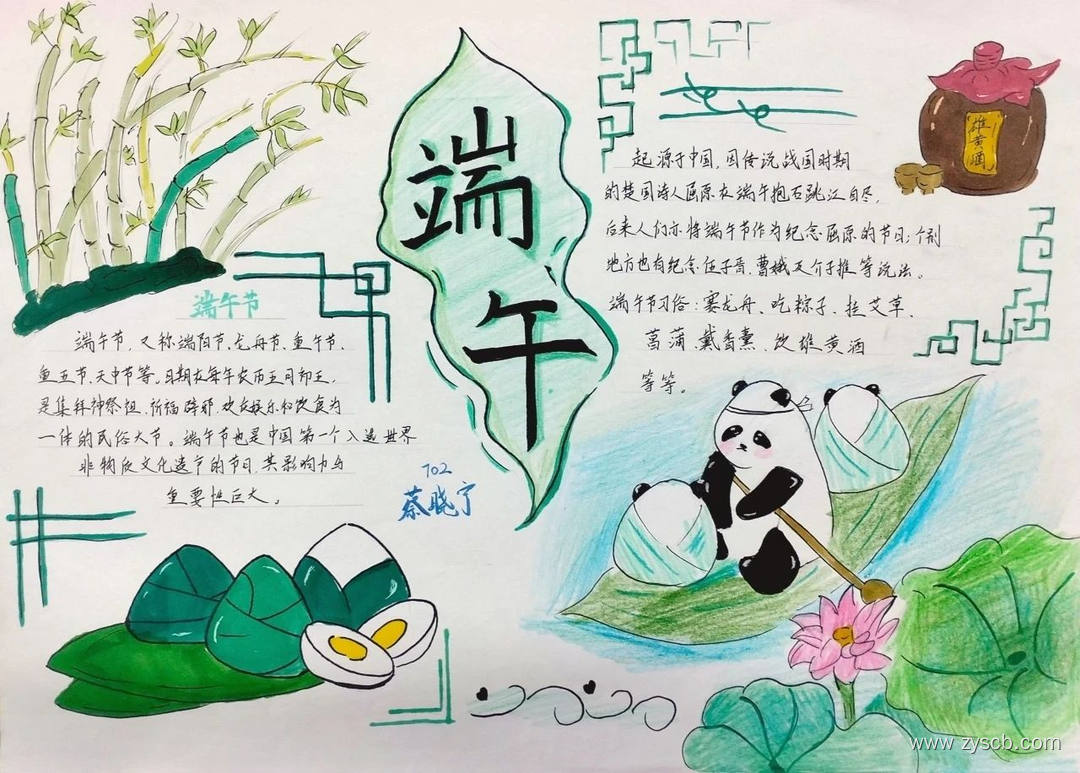 端午
端午节
端午节，又称端阳节、龙舟节、重午节、
重五节、天中节等。日期在每年农历五月初五，
是集拜神祭祖、祈福辟邪、欢庆娱乐和饮食为
一体的民俗大节。端午节也是中国第一个入选世界
非物质文化遗产的节日，其影响力与
重要性巨大。
702
蔡晓宁
起源于中国，因传说战国时期
的楚国诗人屈原在端午抱石跳江自尽，
后来人们亦将端午节作为纪念屈原的节日；个别
地方也有纪念伍子胥、曹娥及介子推等说法。
端午节习俗：赛龙舟、吃粽子、挂艾草、
菖蒲、戴香薰、饮雄黄酒
等等。
雄黄酒
www.zyscb.com